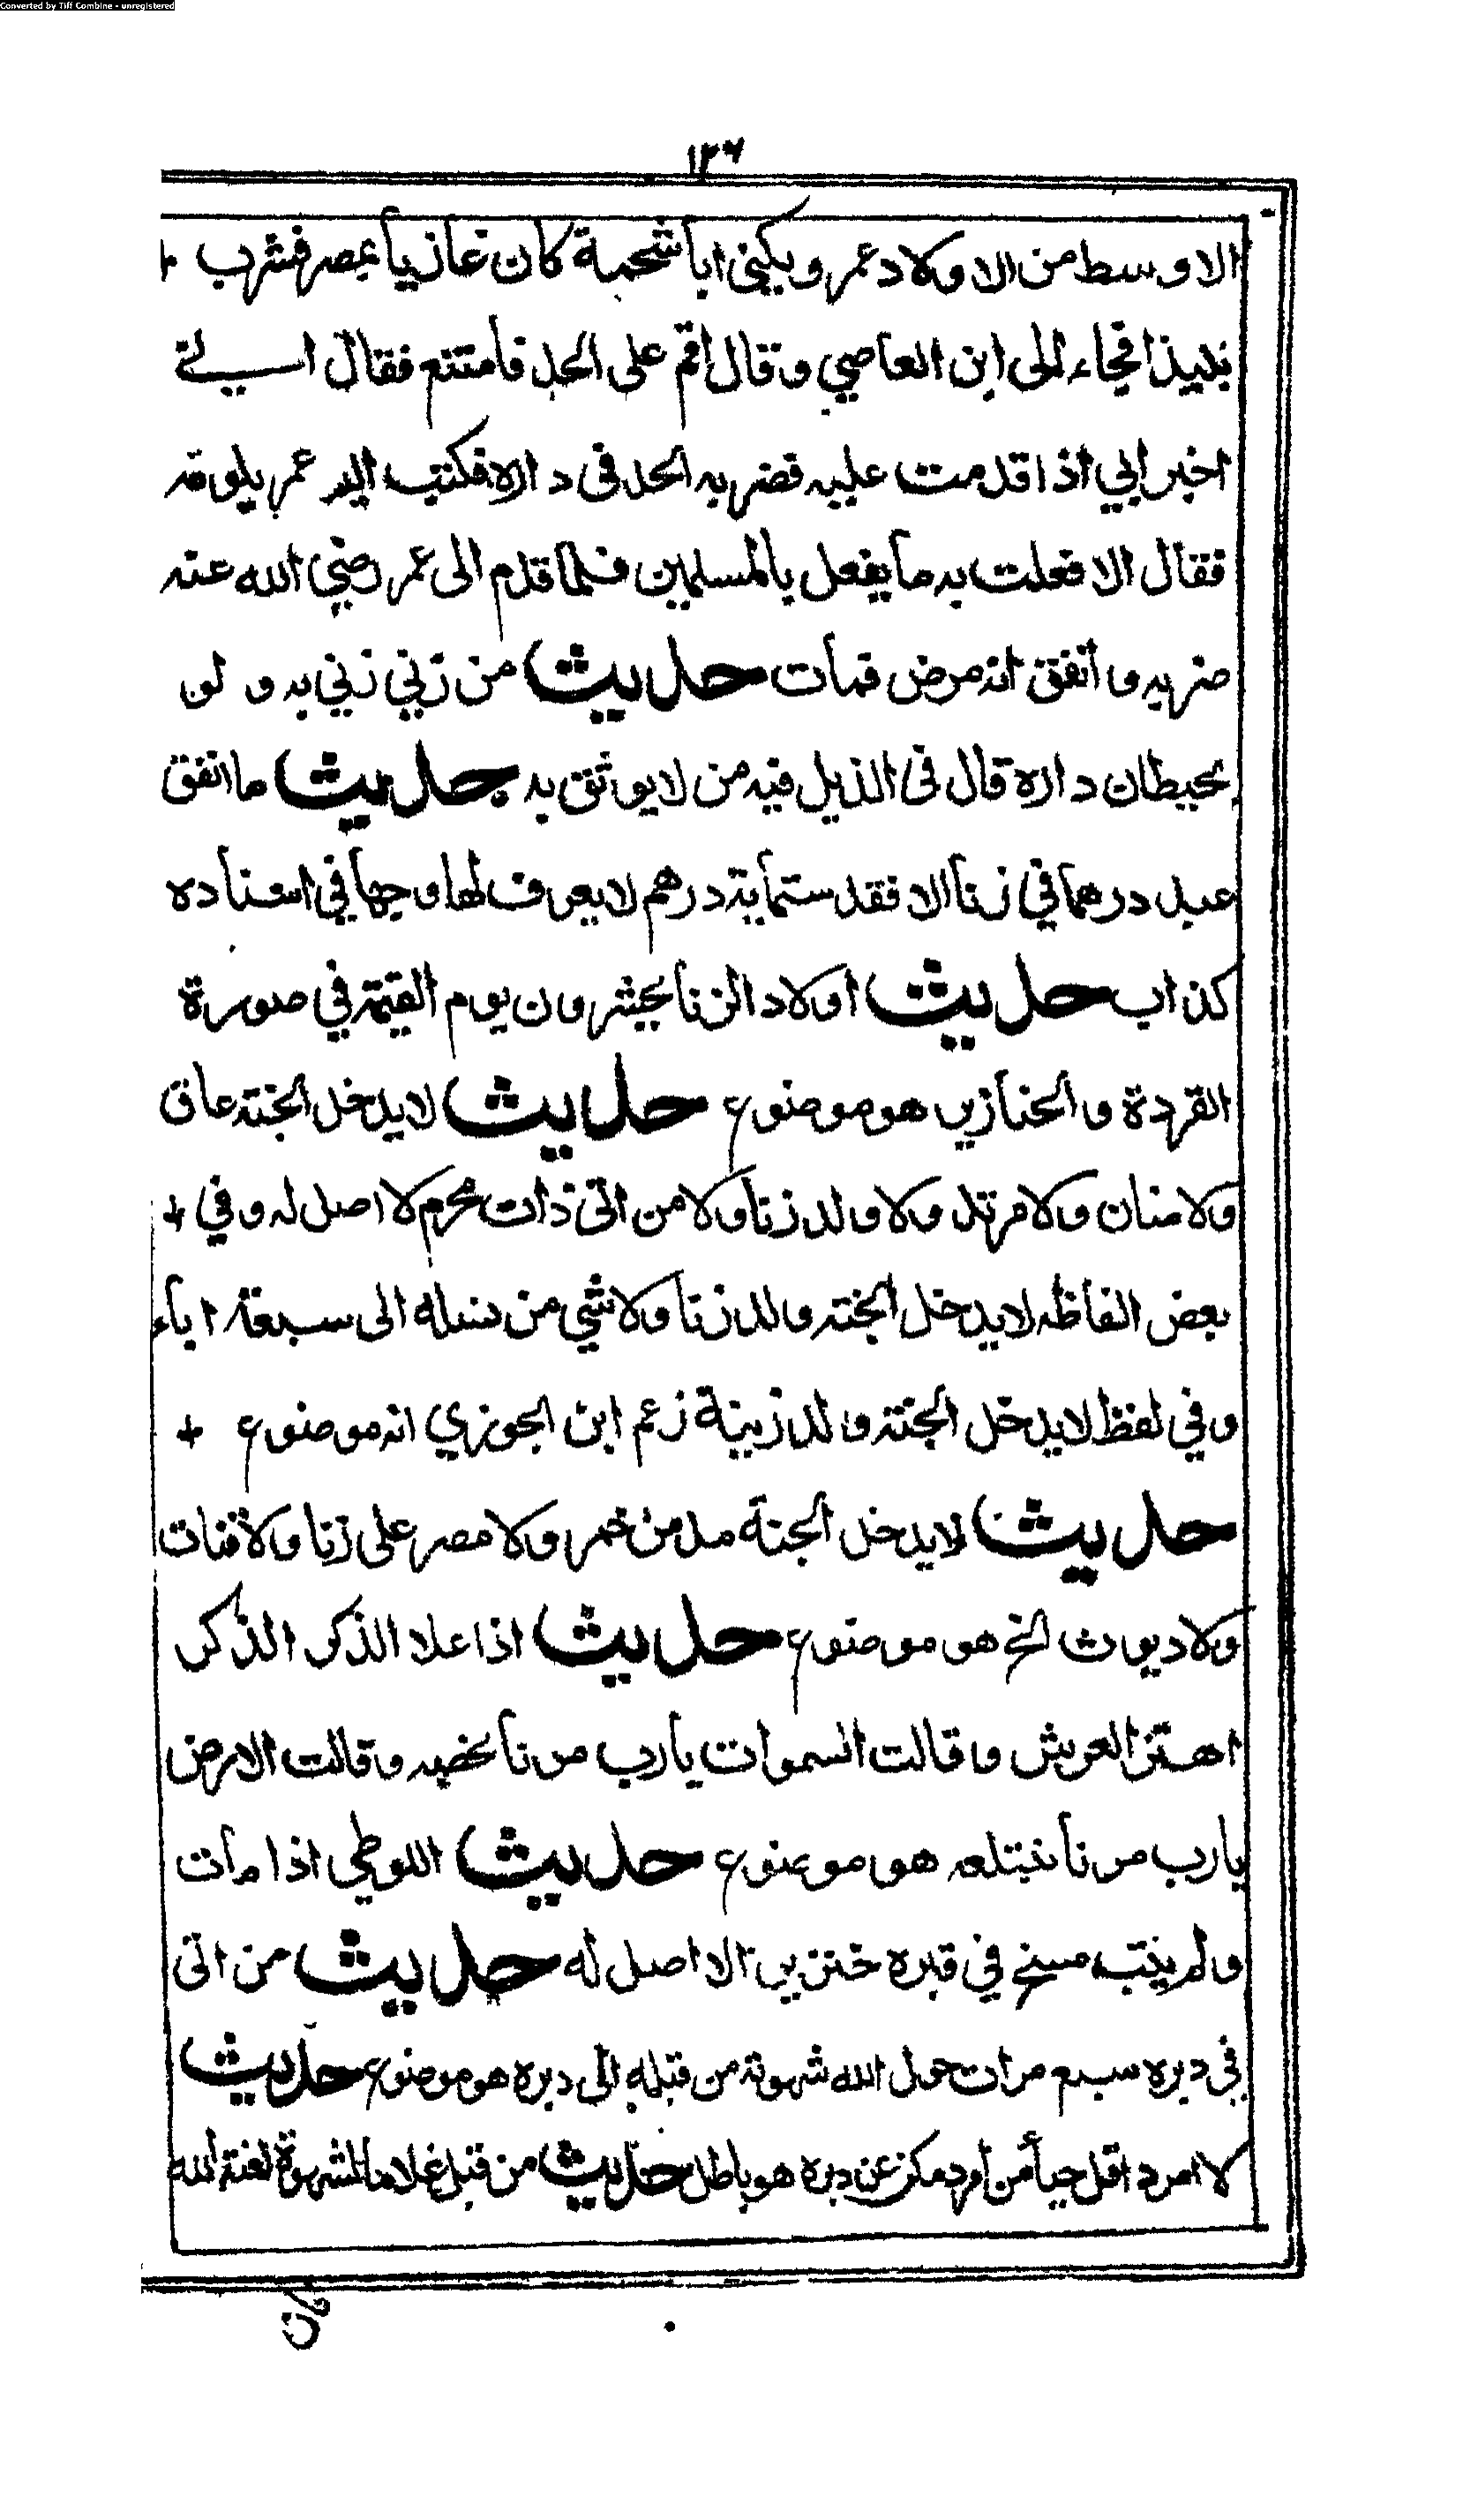 Converted by Tiff Combine - unregistered
١٢٦
الاوسط من الاولاد عمر ويكنى ابا شحمة كان غازيا بمصر فشرب
نبيذا فجاء الى ابن العاصي وقال اقم على الحد فامتنع فقال اسـنے
اخبر ابي اذا قدمت عليه فضربه الحد في داره فكتب اليه عمر يلومه
فقال الا فعلت به ما يفعل بالمسلمين فلما قدم الى عمر رضي الله عنه
ضربه واتفق انه مرض فمات حديث من زني زني به ولو
بحيطان داره قال في الذيل فيه من لا يوثق به حديث ما انفق
عبد درهما في زنا الا فقد ستماية درهم لا يعرف لها وجها في اسناده
كذاب حديث اولاد الزنا يحشرون يوم القيمة في صورة
القردة والخنازير هو موضوع حديث لا يدخل الجنة عاق
ولا منان ولا مرتد ولا ولد زنا ولا من اتى ذات محرم لا اصل له وفي
بعض الفاظه لا يدخل الجنة ولد زنا ولا شي من نسله الى سبعة اباء
وفي لفظ لا يدخل الجنة ولد زينة زعم ابن الجوزي انه موضوع
حديث لا يدخل الجنة مدمن خمر ولا مصر على زنا ولا قتات
ولا ديوث الخ هو موضوع حديث اذا علا الذكر الذكر
اهتز العرش وقالت السموات يارب مرنا نحصبه وقالت الارض
يارب مرنا نبتلعه هو موضوع حديث اللوطي اذا مات
ولم يتب مسخ في قبره خنزيرا لا اصل له حديث من اتى
في دبره سبع مرات حول الله شهوته من قبله الى دبره هو موضوع حديث
لا امرد اقل حيا من امرد مكن عن دبره هو باطل حديث من قبل غلاما لشهوة لعنة الله